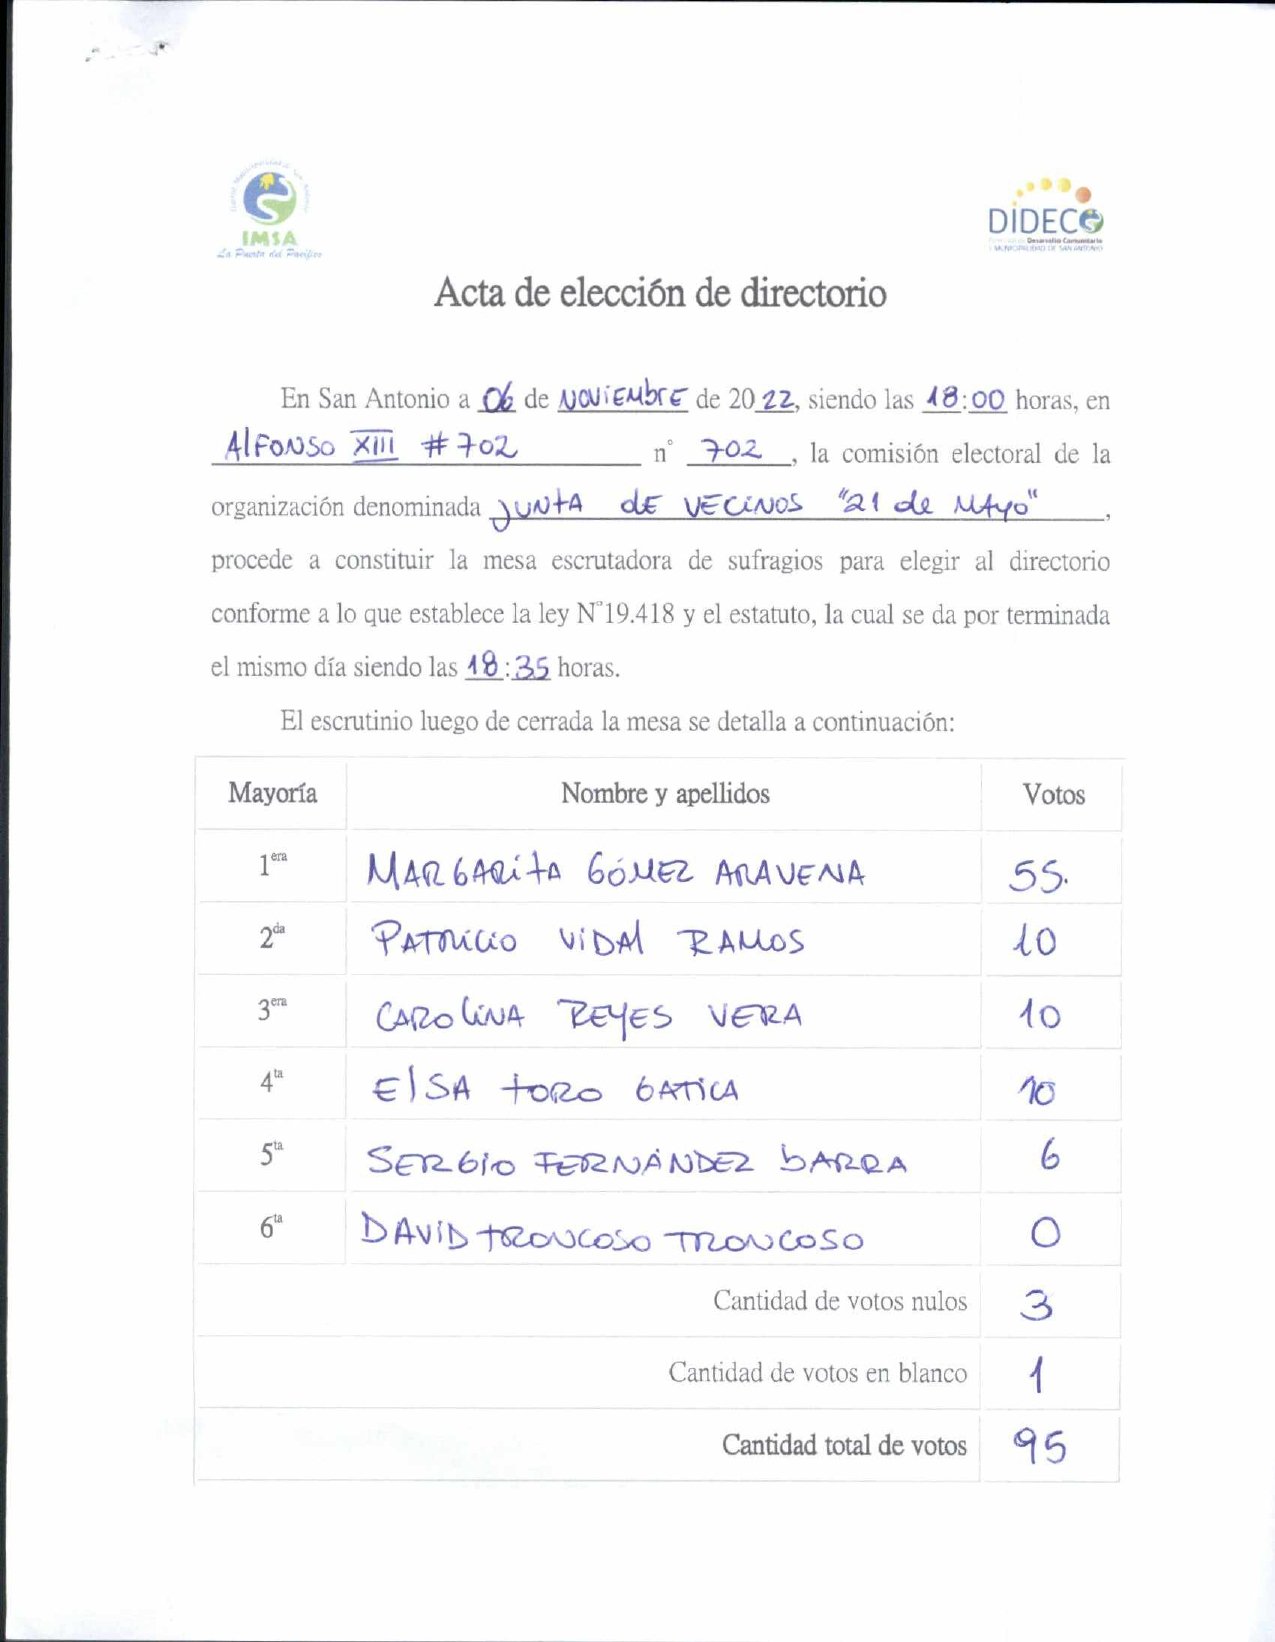 IMSA
La Puerta del Pacífico
DIDECO
Desarrollo Comunitario
I MUNICIPALIDAD DE SAN ANTONIO
Acta de elección de directorio
En San Antonio a 06 de NOViEMbrE de 2022, siendo las 18:00 horas, en
AlFONSO XIII # 702 n° 702, la comisión electoral de la
organización denominada JUNtA dE VECiNOS "21 de MAyo",
procede a constituir la mesa escrutadora de sufragios para elegir al directorio
conforme a lo que establece la ley N°19.418 y el estatuto, la cual se da por terminada
el mismo día siendo las 18:35 horas.
El escrutinio luego de cerrada la mesa se detalla a continuación:
Mayoría Nombre y apellidos Votos
1era MARGARitA GÓMEZ ARAVENA 55.
2da PATRiCiO ViDAl RAMOS 10
3era CAROLiNA REYES VERA 10
4ta ElSA tORO GATiCA 10
5ta SERGiO FERNÁNDEZ bARRA 6
6ta DAViD tRONCOSO TRONCOSO 0
Cantidad de votos nulos 3
Cantidad de votos en blanco 1
Cantidad total de votos 95